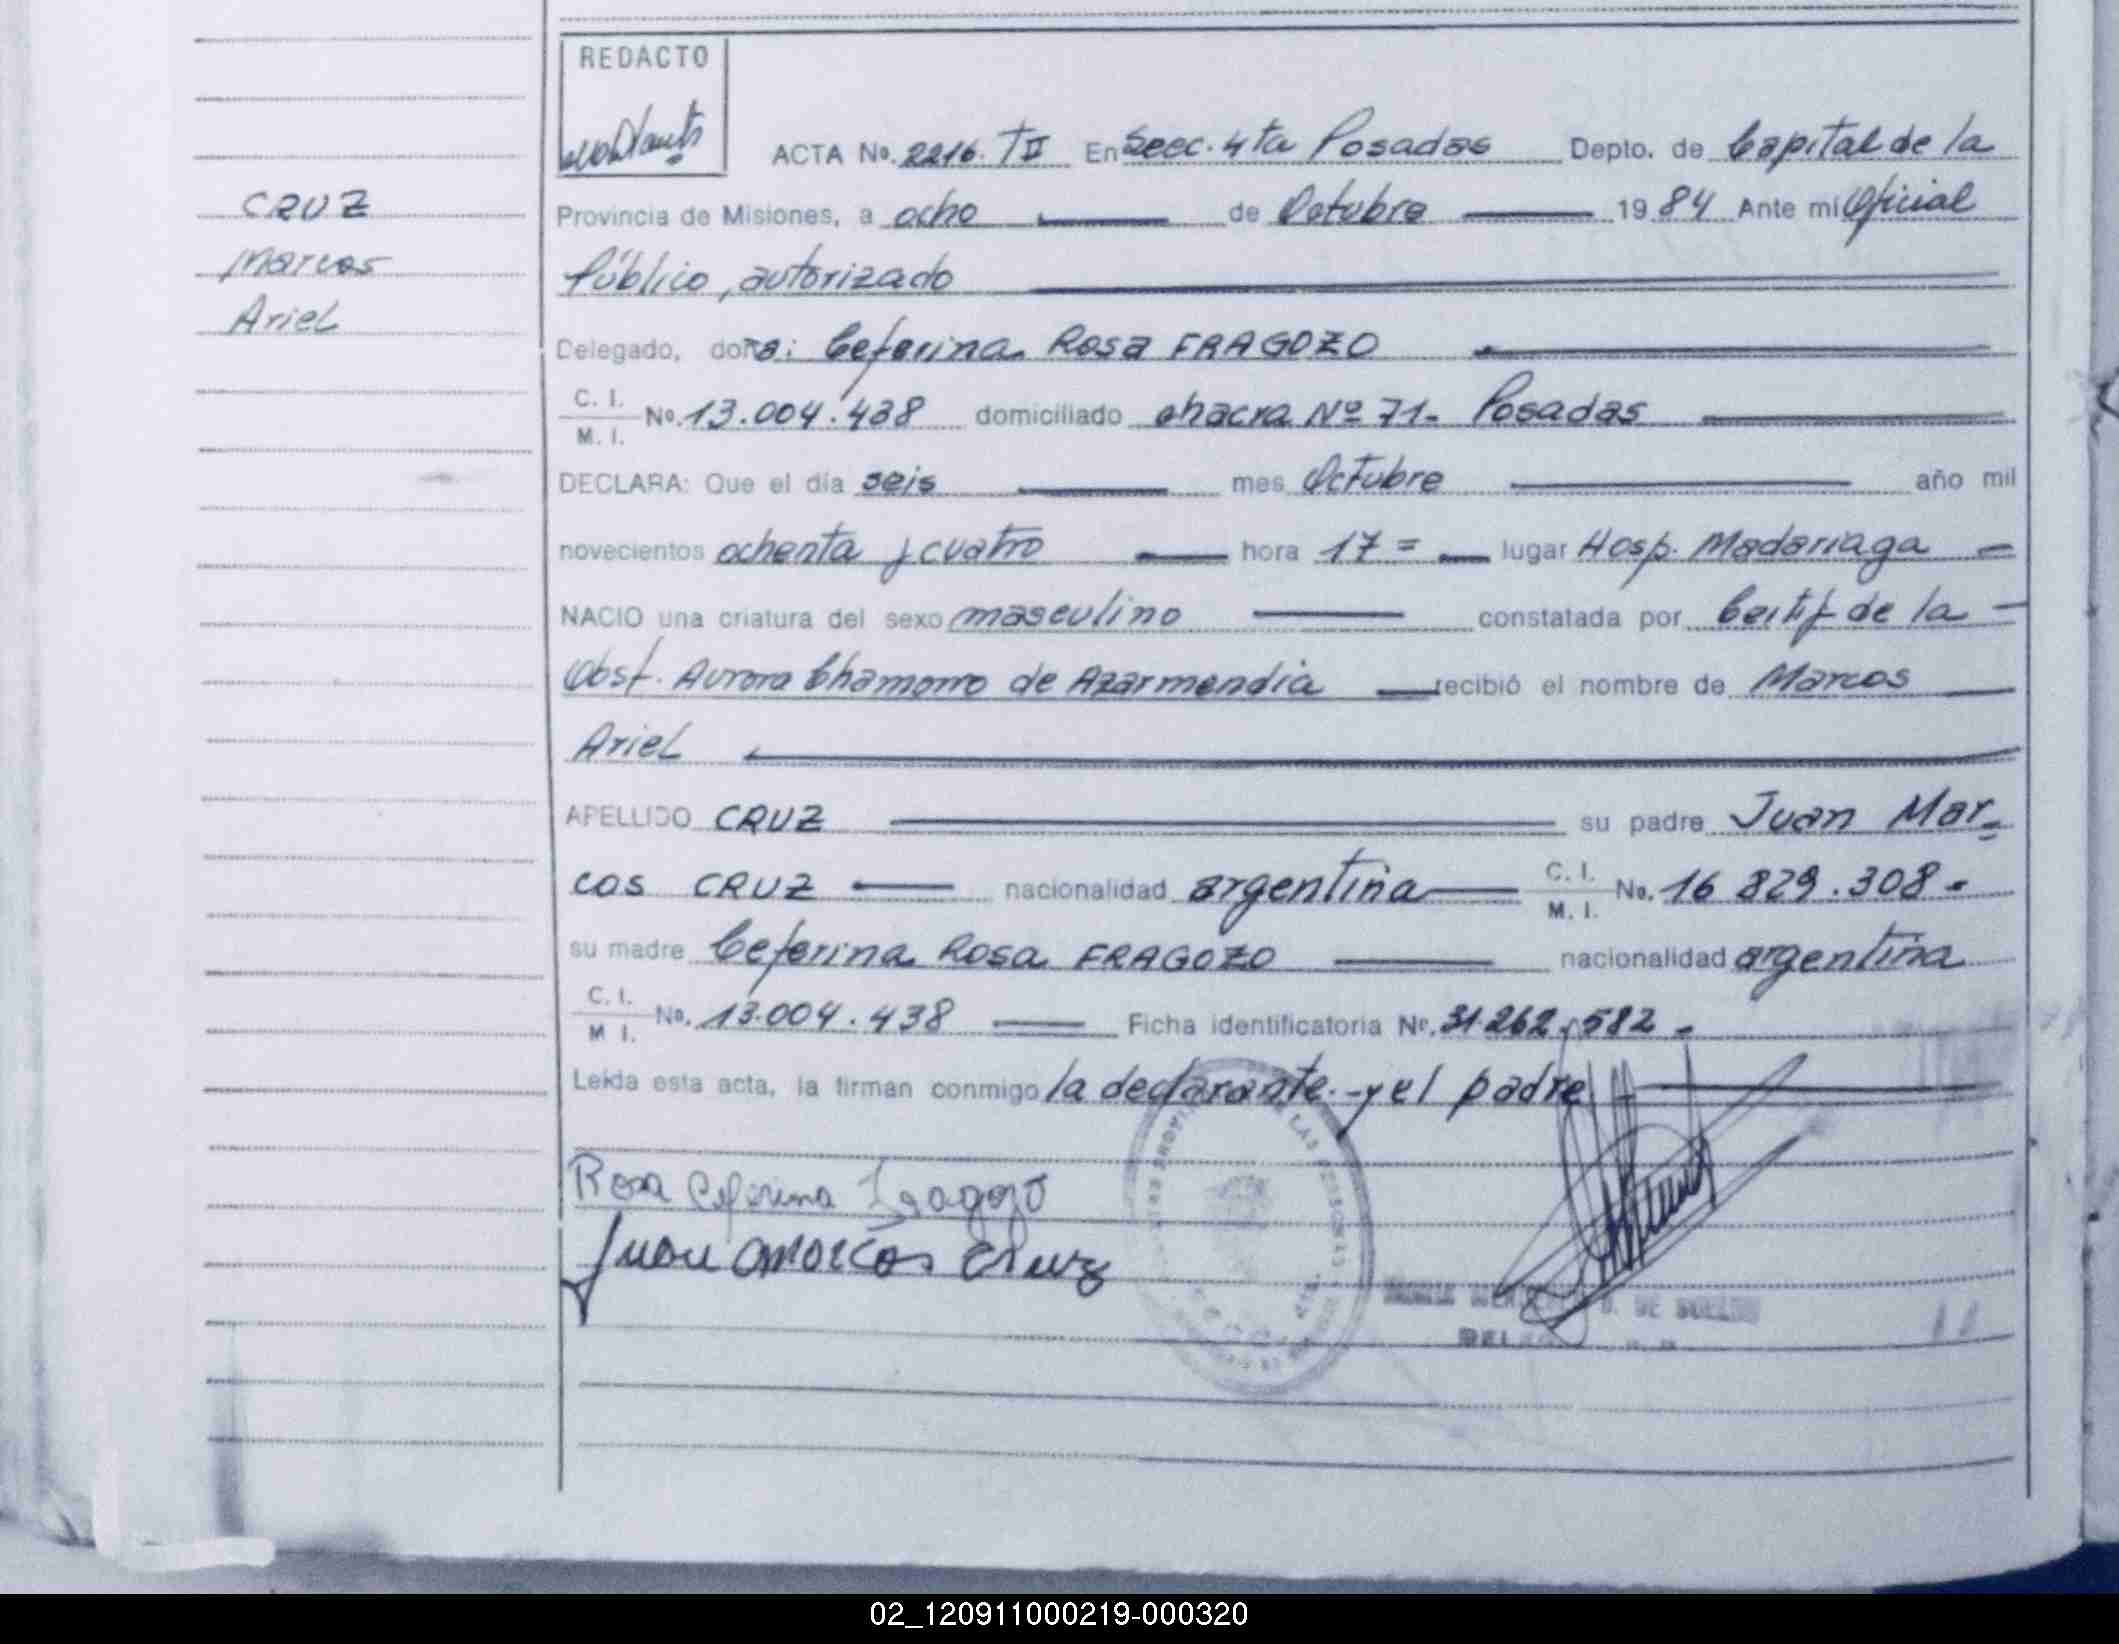 REDACTO
ACTA No. 2216. TII En Secc. 4ta Posadas Depto. de Capital de la
CRUZ
Marcos
Ariel
Provincia de Misiones, a ocho de Octubre 1984 Ante mi Oficial
Público, autorizado
Delegado, doña: Ceferina Rosa FRAGOZO
C. I.
M. I.
No. 13.004.438 domiciliado chacra Nº 71- Posadas
DECLARA: Que el día seis mes Octubre año mil
novecientos ochenta y cuatro hora 17= lugar Hosp. Madariaga
NACIO una criatura del sexo masculino constatada por Certif de la
Obst. Aurora Chamorro de Azarmendia recibió el nombre de Marcos
Ariel
APELLIDO CRUZ su padre Juan Mar-
cos CRUZ nacionalidad argentina C. I. M. I. No. 16 829.308-
su madre Ceferina Rosa FRAGOZO nacionalidad argentina
C. I.
M I.
No. 13.004.438 Ficha identificatoria Nº. 31.262.582-
Leida esta acta, la firman conmigo la declarante.- y el padre
Rosa Ceferina Fragozo
Juan Marcos Cruz
02_120911000219-000320